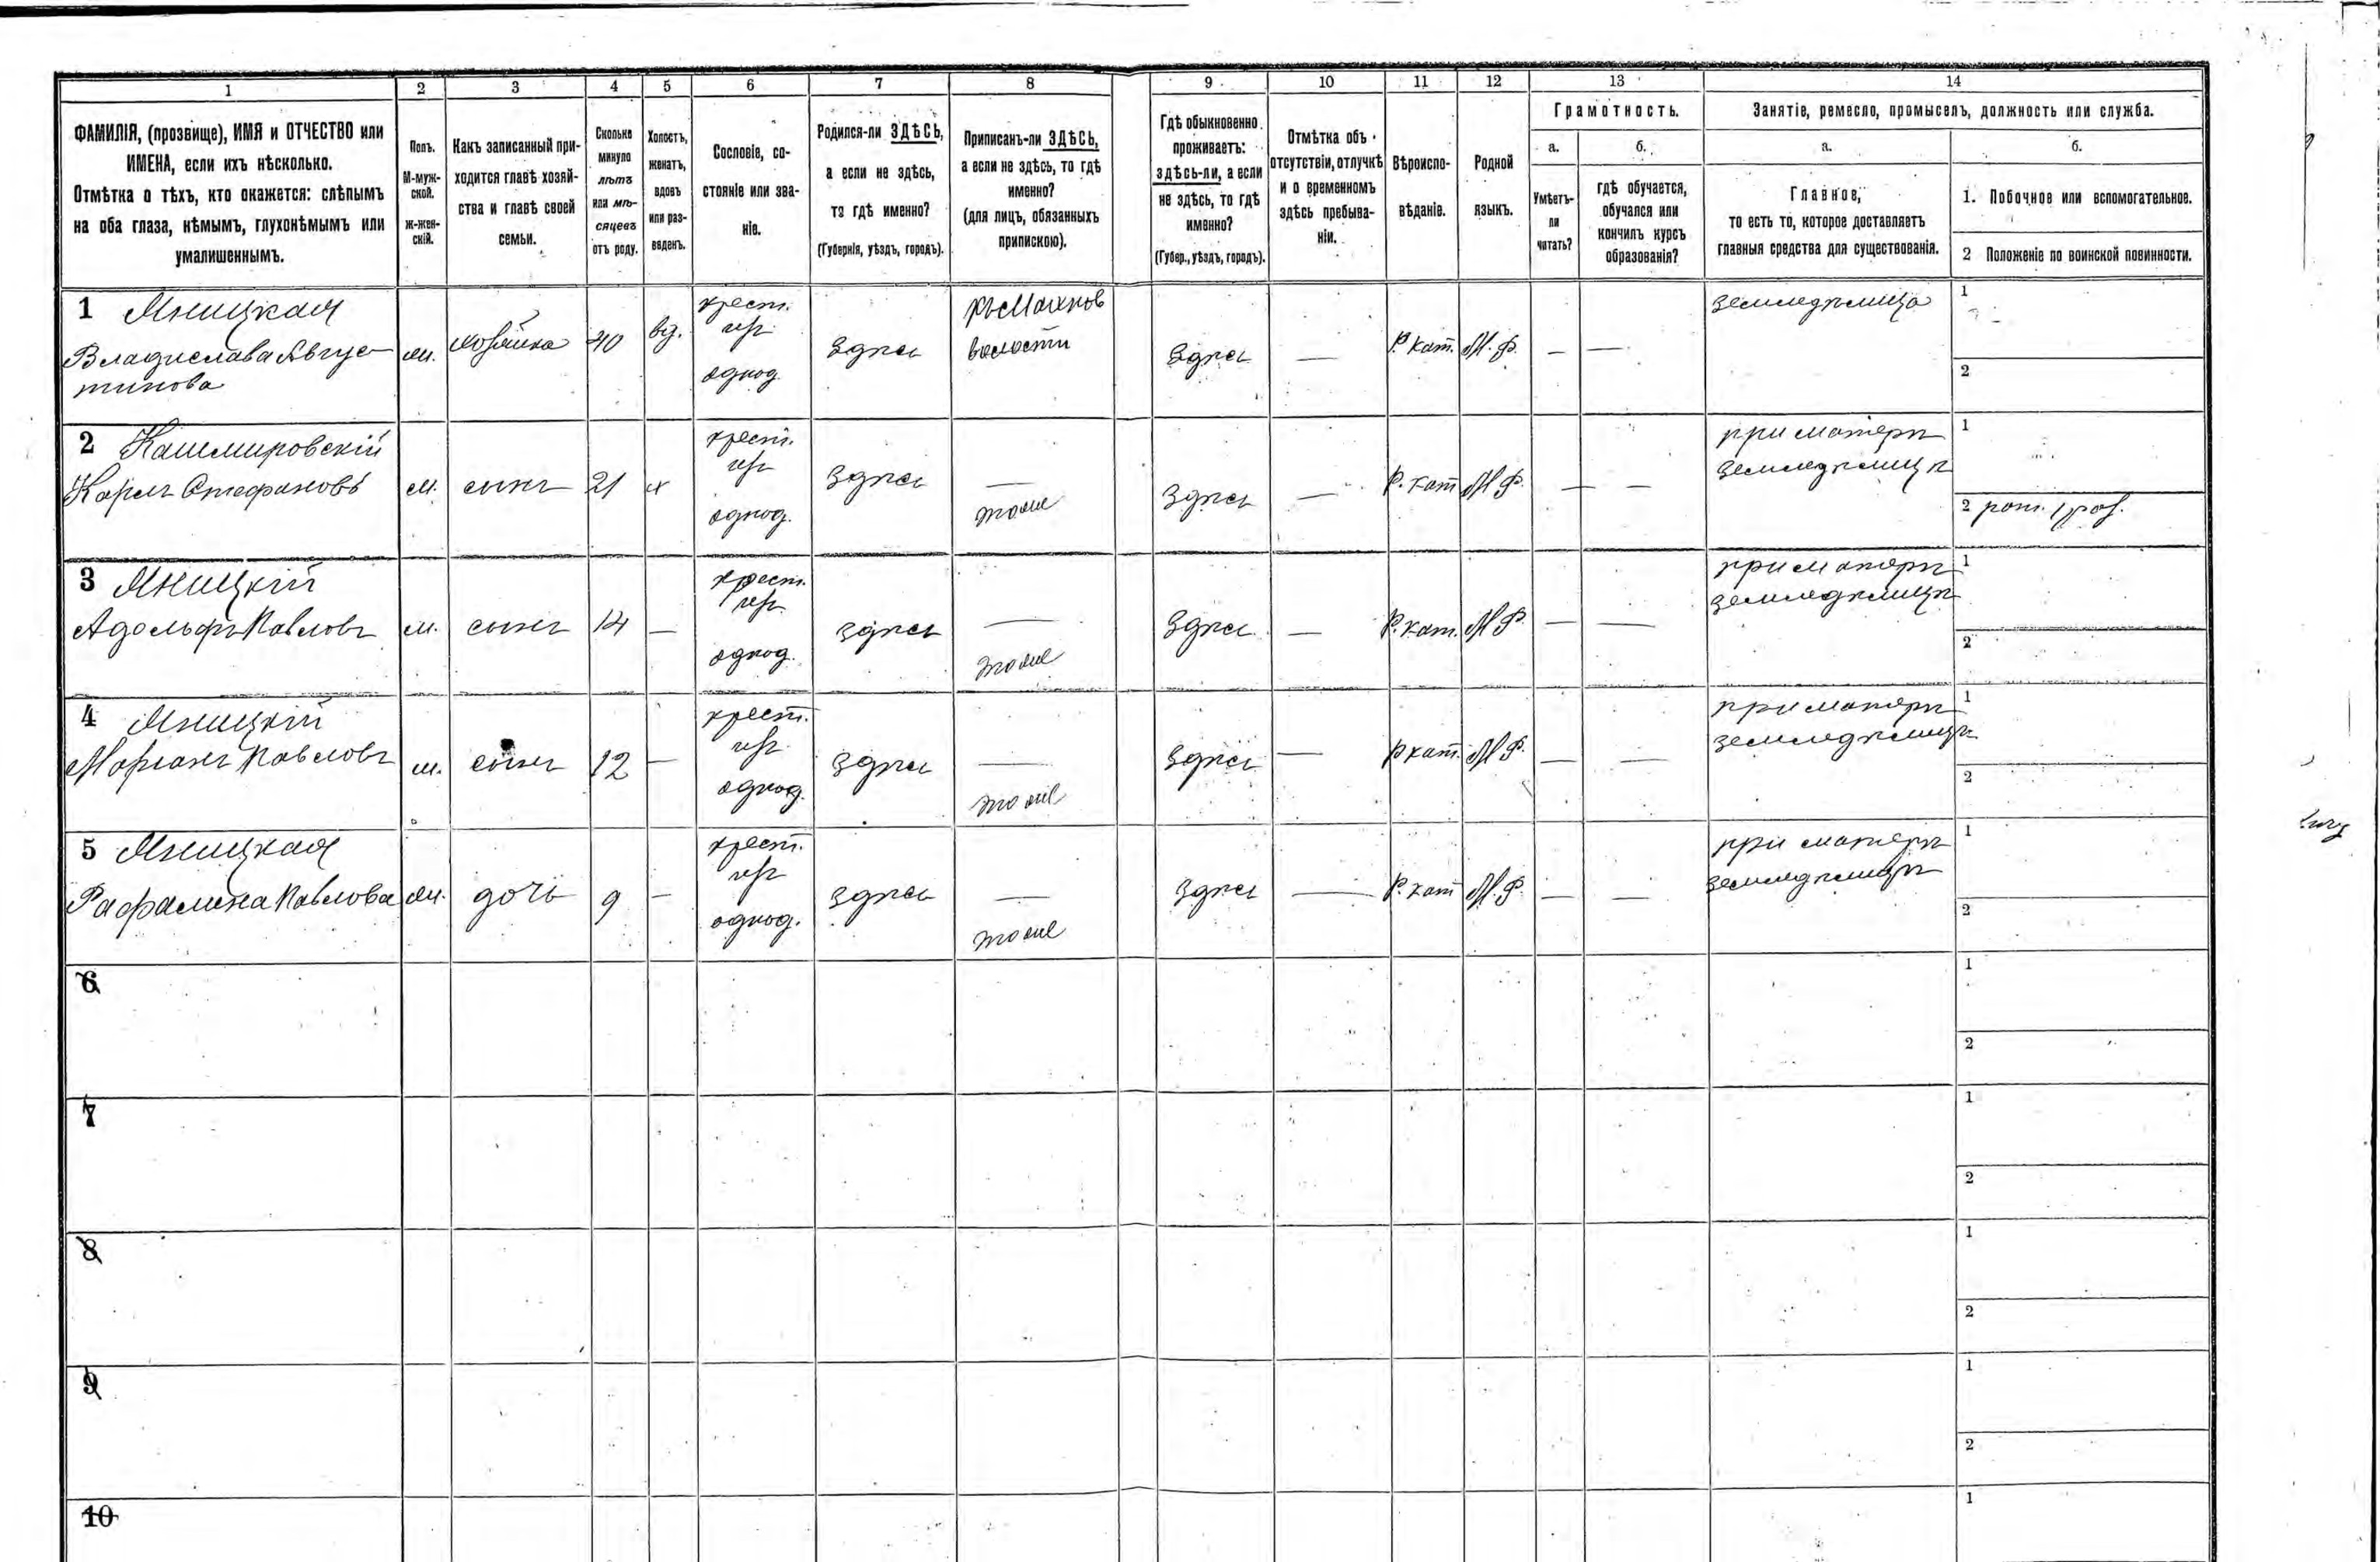 1 2 3 4 5 6 7 8 9 10 11 12 13 14
ФАМИЛІЯ, (прозвище), ИМЯ и ОТЧЕСТВО или
ИМЕНА, если ихъ нѣсколько.
Отмѣтка о тѣхъ, кто окажется: слѣпымъ
на оба глаза, нѣмымъ, глухонѣмымъ или
умалишеннымъ.
Полъ.
М-муж-
ской.
ж-жен-
скій.
Какъ записанный при-
ходится главѣ хозяй-
ства и главѣ своей
семьи.
Сколько
минуло
лѣтъ
или мѣ-
сяцевъ
отъ роду.
Холостъ,
женатъ,
вдовъ
или раз-
веденъ.
Сословіе, со-
стояніе или зва-
ніе.
Родился-ли ЗДѢСЬ,
а если не здѣсь,
то гдѣ именно?
(Губернія, уѣздъ, городъ).
Приписанъ-ли ЗДѢСЬ,
а если не здѣсь, то гдѣ
именно?
(для лицъ, обязанныхъ
припискою).
Гдѣ обыкновенно
проживаетъ:
здѣсь-ли, а если
не здѣсь, то гдѣ
именно?
(Губер., уѣздъ, городъ).
Отмѣтка объ
отсутствіи, отлучкѣ
и о временномъ
здѣсь пребыва-
ніи.
Вѣроиспо-
вѣданіе.
Родной
языкъ.
Грамотность.
а.
Умѣетъ-
ли
читать?
б.
гдѣ обучается,
обучался или
кончилъ курсъ
образованія?
Занятіе, ремесло, промыселъ, должность или служба.
а.
Главное,
то есть то, которое доставляетъ
главныя средства для существованія.
б.
1. Побочное или вспомогательное.
2 Положеніе по воинской повинности.
1 Мницкая
Владислава Авгус-
тинова
ж. хозяйка 40 вд.
крест.
однод.
здѣсь
волости
здѣсь — Р. кат. — —
земледѣлица
1
2
2 Кашмировскій
Карлъ Стефановъ
м. сынъ 21 х
крест.
однод.
здѣсь
—
тоже
здѣсь — Р. кат — —
при матери
земледѣлицѣ
1
2
3 Мницкій
Адольфъ Павловъ
м. сынъ 14 —
крест.
однод.
здѣсь
—
тоже
здѣсь — Р. кат. — —
при матери
земледѣлицѣ
1
2
4 Мницкій
Маріанъ Павловъ
м. сынъ 12 —
крест.
однод.
здѣсь
—
тоже
здѣсь — Р кат. — —
при матери
земледѣлицѣ
1
2
5 Мницкая
Рафалина Павлова
ж. дочь 9 —
крест.
однод.
здѣсь
—
тоже
здѣсь — Р. кат — —
при матери
земледѣлицѣ
1
2
6
1
2
7
1
2
8
1
2
9
1
2
10
1